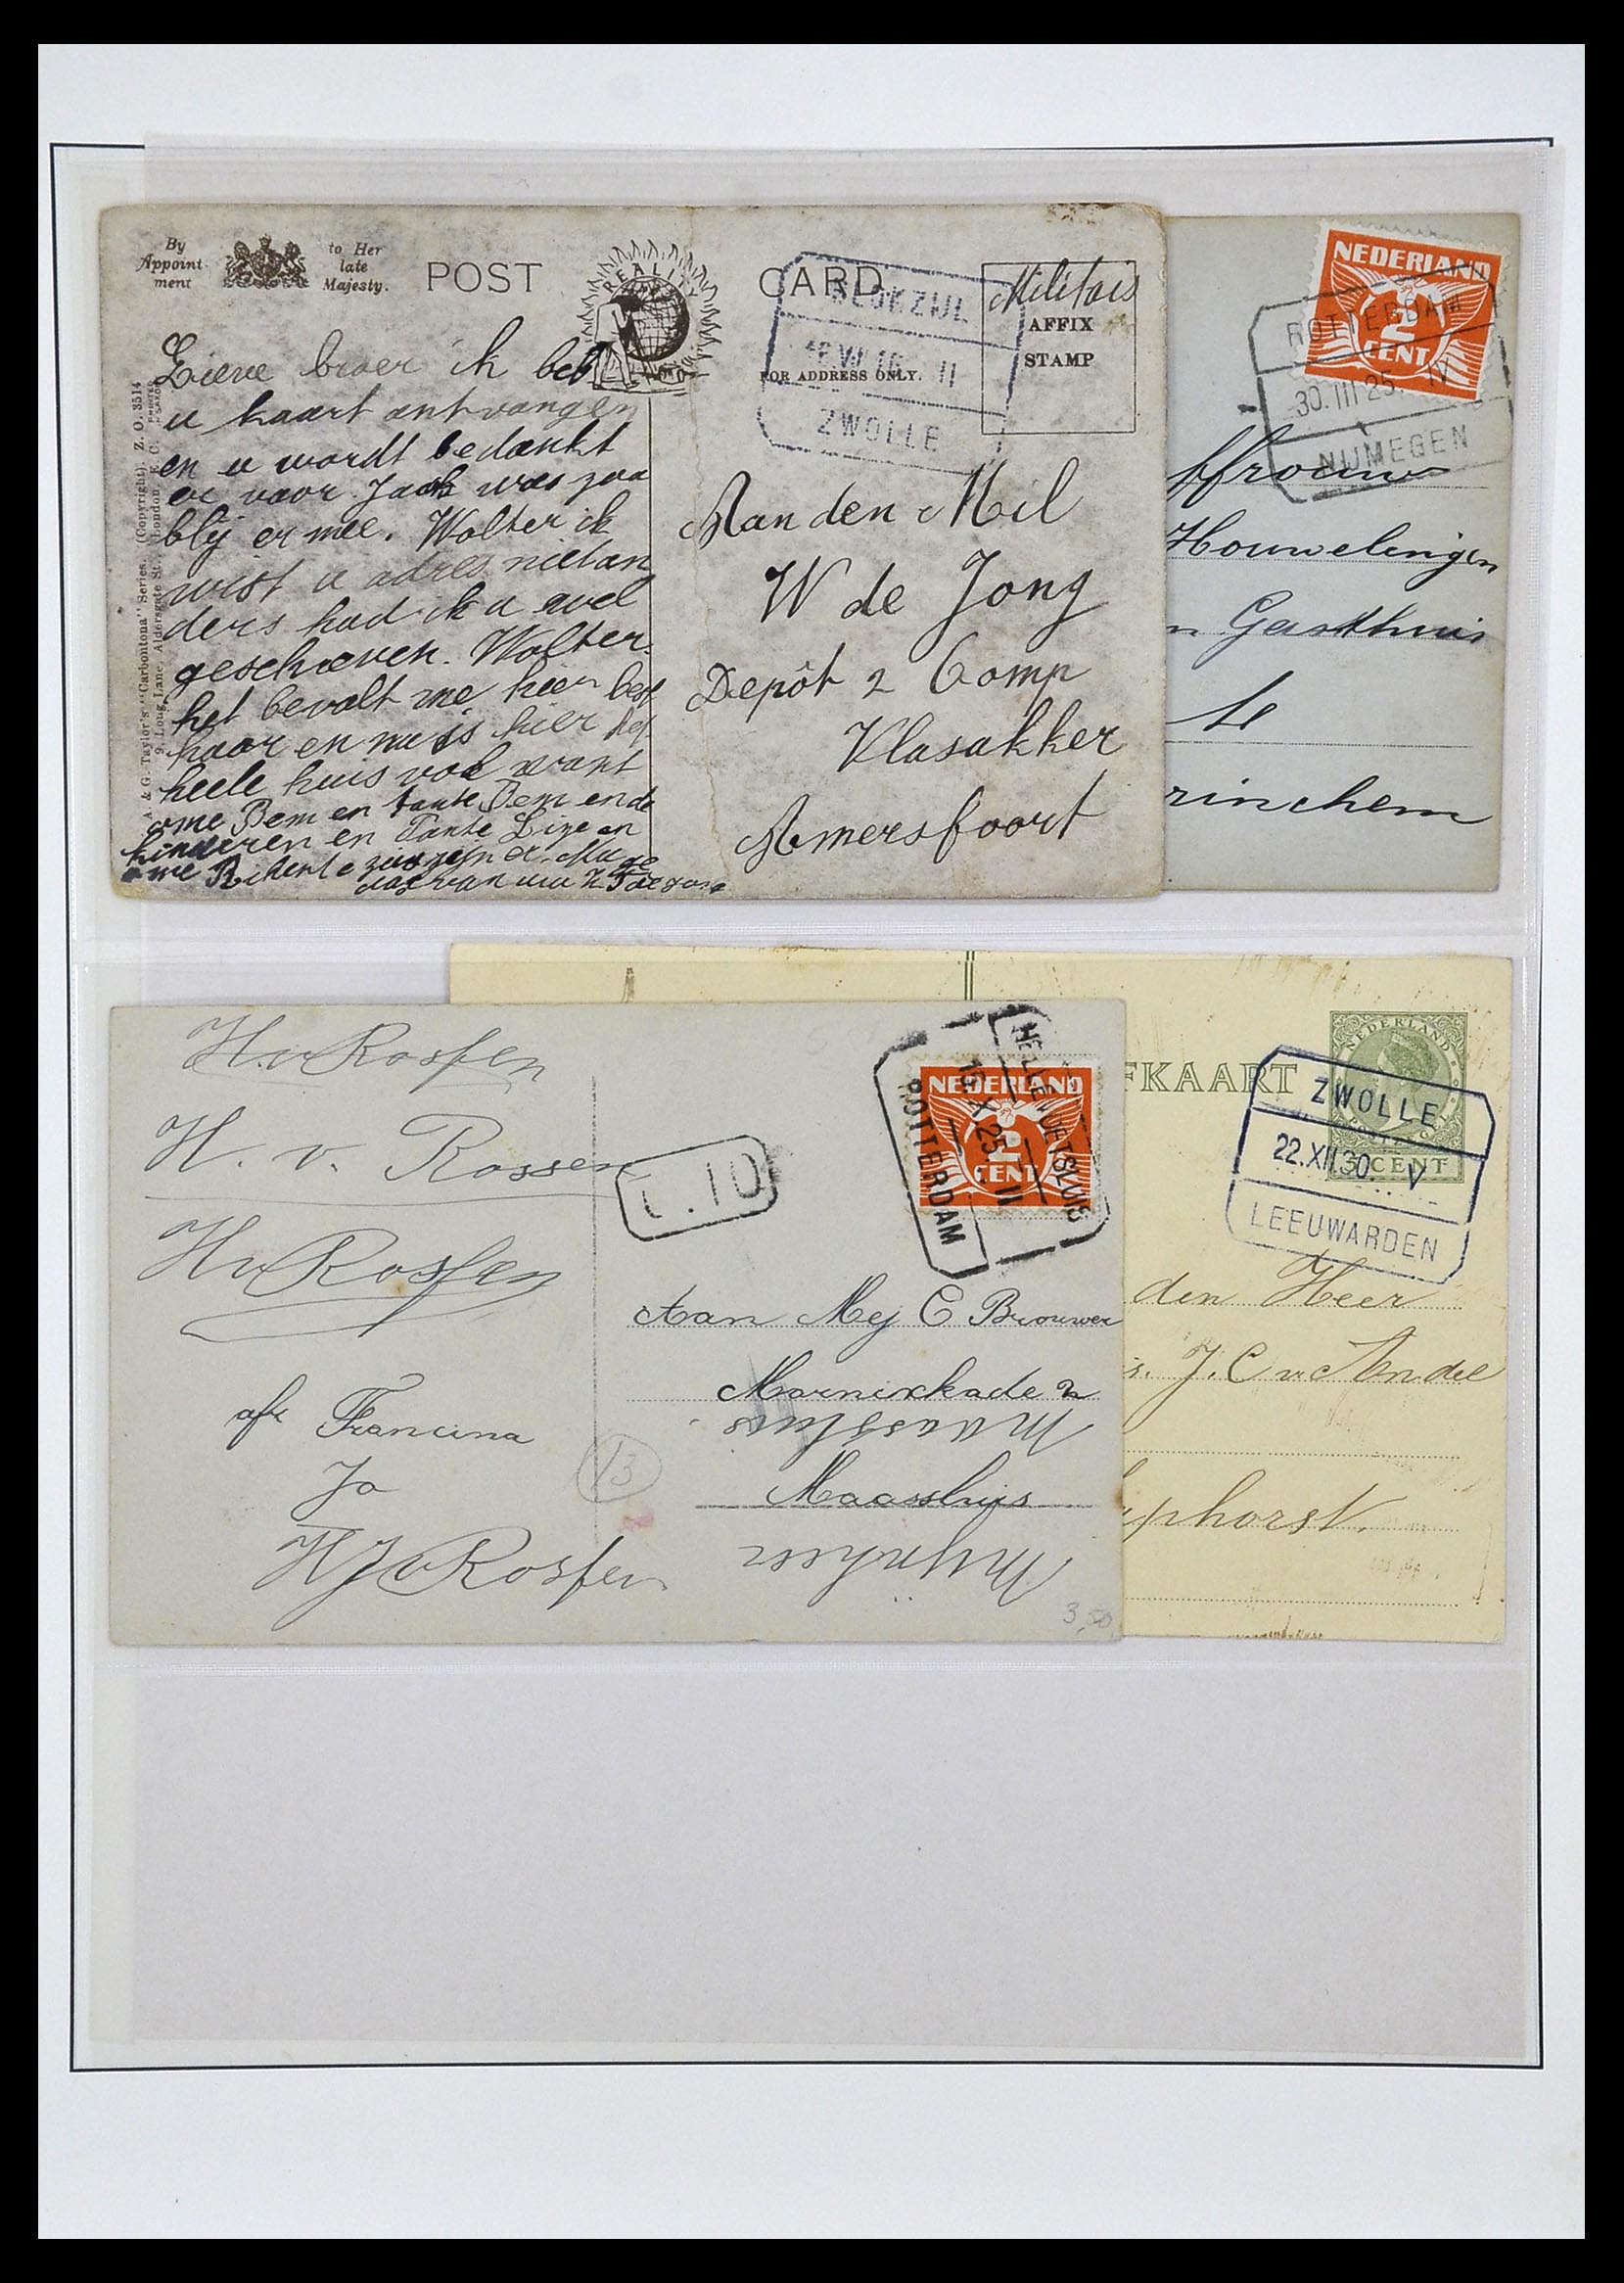 By
Appoint
ment
to Her
late
Majesty.
POST
CARD
REALITY
Militair
AFFIX
STAMP
FOR ADDRESS ONLY.
BLOKZIJL
16 VII 16 II
ZWOLLE
A & G. Taylor's "Carbontona" Series. (Copyright). Z. O. 3514
9, Long Lane, Aldersgate St., London, E.C.
Lieve broer ik heb
u kaart ontvangen
en u wordt bedankt
er voor Jacob was zoo
blij er mee. Wolter ik
wist u adres niet an
ders had ik u wel
geschreven. Wolter.
het bevalt me hier best
hoor en nu is hier het
heele huis vol want
ome Bem en tante Bem en de
kinderen en Tante Lize en
ome
Aan den Mil
W de Jong
Depôt 2 Comp
Vlasakker
Amersfoort
NEDERLAND
2
CENT
ROTTERDAM
30.III 25. IV
NIJMEGEN
ffrouw
Houwelingen
n Gasthuis
te
rinchem
H.v Rossen
H. v. Rossen
Hv Rossen
afz Francina
Jo
HJv Rossen
t.10
NEDERLAND
2
CENT
HELLEVOETSLUIS
16 X 25. III
ROTTERDAM
Aan Mej C Brouwer
Marnixkade 2
Maassluis
Maassluis
Mijnheer
13
3,50
FKAART
NEDERLAND
5 CENT
ZWOLLE
22.XII.30. V
LEEUWARDEN
den Heer
s. J. C v Andel
phorst.